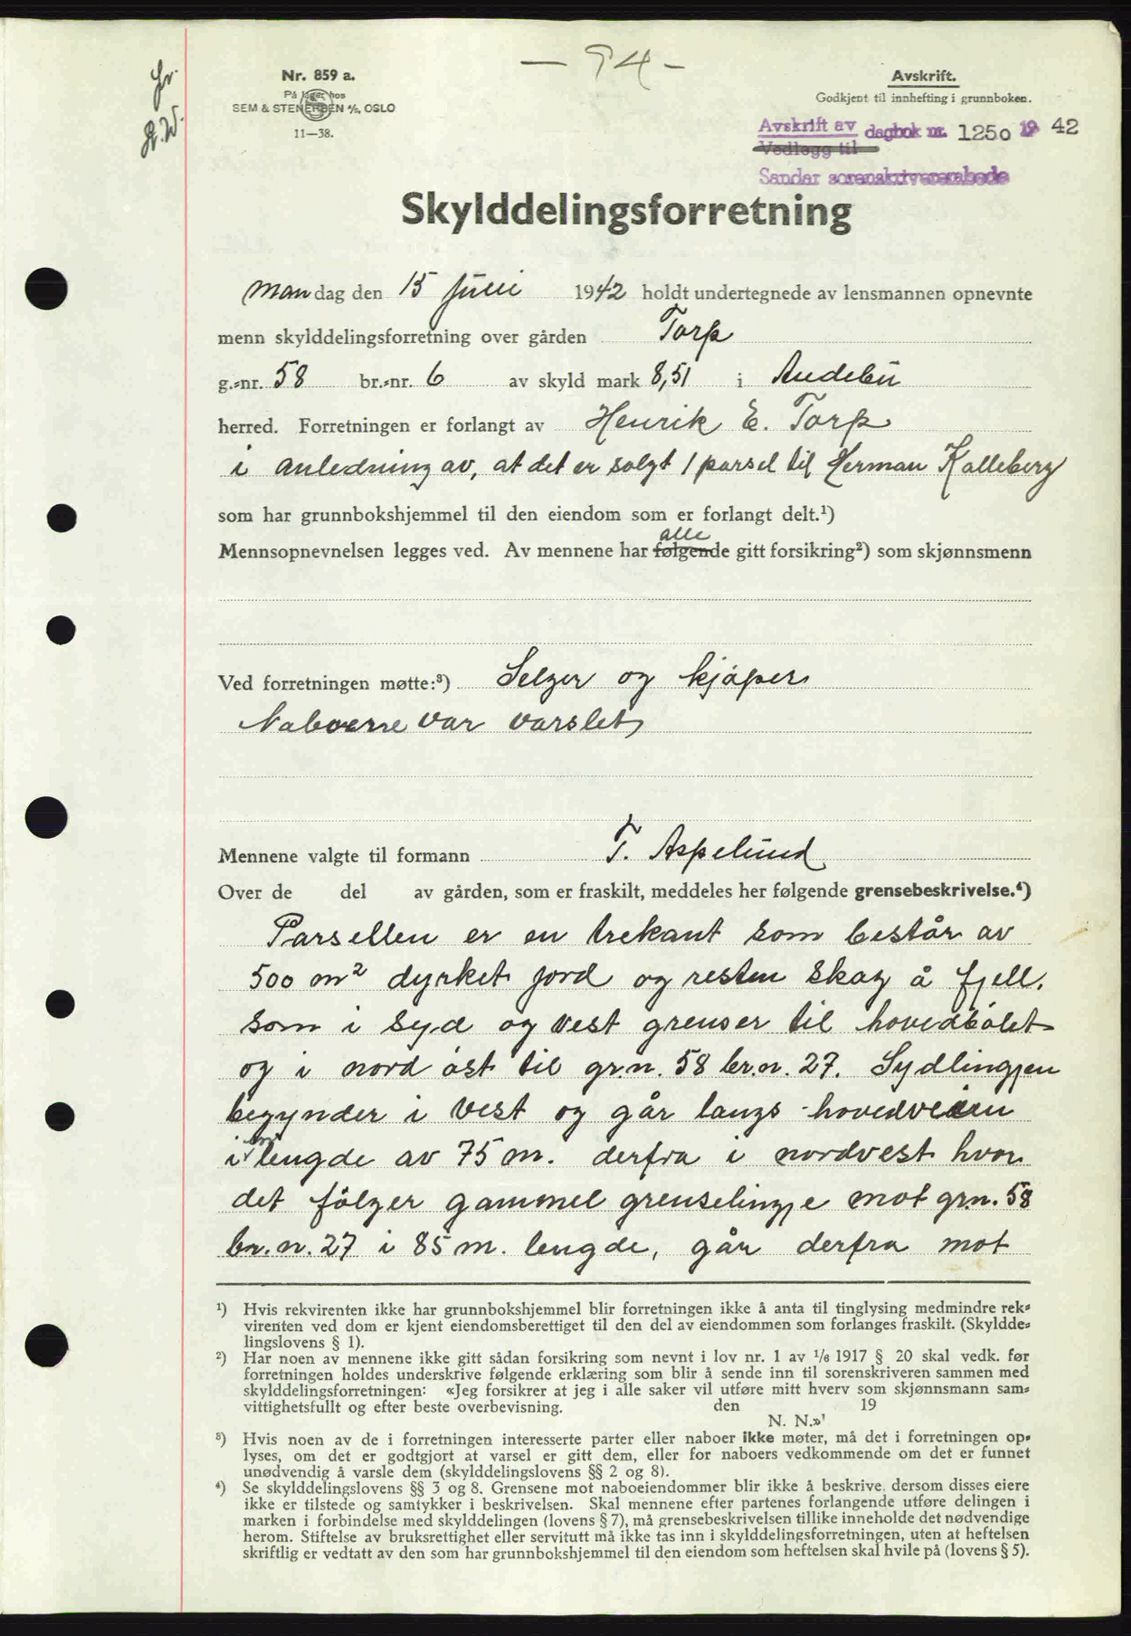 — 94 —
Nr. 859 a.
På lager hos
SEM & STENERSEN A/S, OSLO
11—38.
Avskrift.
Godkjent til innhefting i grunnboken.
Avskrift av dagbok nr. 1250 19 42
Vedlegg til
Sandar sorenskriverembede
Skylddelingsforretning
Mandag den 15 juni 1942 holdt undertegnede av lensmannen opnevnte
menn skylddelingsforretning over gården Torp
g.-nr. 58 br.-nr. 6 av skyld mark 8,51 i Andebu
herred. Forretningen er forlangt av Henrik E. Torp
i anledning av, at det er solgt 1 parsel til Herman Kalleberg
som har grunnbokshjemmel til den eiendom som er forlangt delt.¹)
alle
Mennsopnevnelsen legges ved. Av mennene har følgende gitt forsikring²) som skjønnsmenn
Ved forretningen møtte:³) Selger og kjøper
Naboerne var varslet
Mennene valgte til formann T. Aspelund
Over de del av gården, som er fraskilt, meddeles her følgende grensebeskrivelse.⁴)
Parsellen er en trekant som består av
500 m² dyrket jord og resten skog å fjell.
som i syd og vest grenser til hovedbølet
og i nord øst til gr.n. 58 br.n. 27. Sydlingjen
begynder i vest og går langs hovedveien
i en lengde av 75 m. derfra i nordvest hvor
det følger gammel grenselingje mot gr.n. 58
br.n. 27 i 85 m. lengde, går derfra mot
¹) Hvis rekvirenten ikke har grunnbokshjemmel blir forretningen ikke å anta til tinglysing medmindre rek-
virenten ved dom er kjent eiendomsberettiget til den del av eiendommen som forlanges fraskilt. (Skyldde-
lingslovens § 1).
²) Har noen av mennene ikke gitt sådan forsikring som nevnt i lov nr. 1 av 1/6 1917 § 20 skal vedk. før
forretningen holdes underskrive følgende erklæring som blir å sende inn til sorenskriveren sammen med
skylddelingsforretningen: «Jeg forsikrer at jeg i alle saker vil utføre mitt hverv som skjønnsmann sam-
vittighetsfullt og efter beste overbevisning. den 19
N. N.»
³) Hvis noen av de i forretningen interesserte parter eller naboer ikke møter, må det i forretningen op-
lyses, om det er godtgjort at varsel er gitt dem, eller for naboers vedkommende om det er funnet
unødvendig å varsle dem (skylddelingslovens §§ 2 og 8).
⁴) Se skylddelingslovens §§ 3 og 8. Grensene mot naboeiendommer blir ikke å beskrive, dersom disses eiere
ikke er tilstede og samtykker i beskrivelsen. Skal mennene efter partenes forlangende utføre delingen i
marken i forbindelse med skylddelingen (lovens § 7), må grensebeskrivelsen tillike inneholde det nødvendige
herom. Stiftelse av bruksrettighet eller servitutt må ikke tas inn i skylddelingsforretningen, uten at heftelsen
skriftlig er vedtatt av den som har grunnbokshjemmel til den eiendom som heftelsen skal hvile på (lovens § 5).